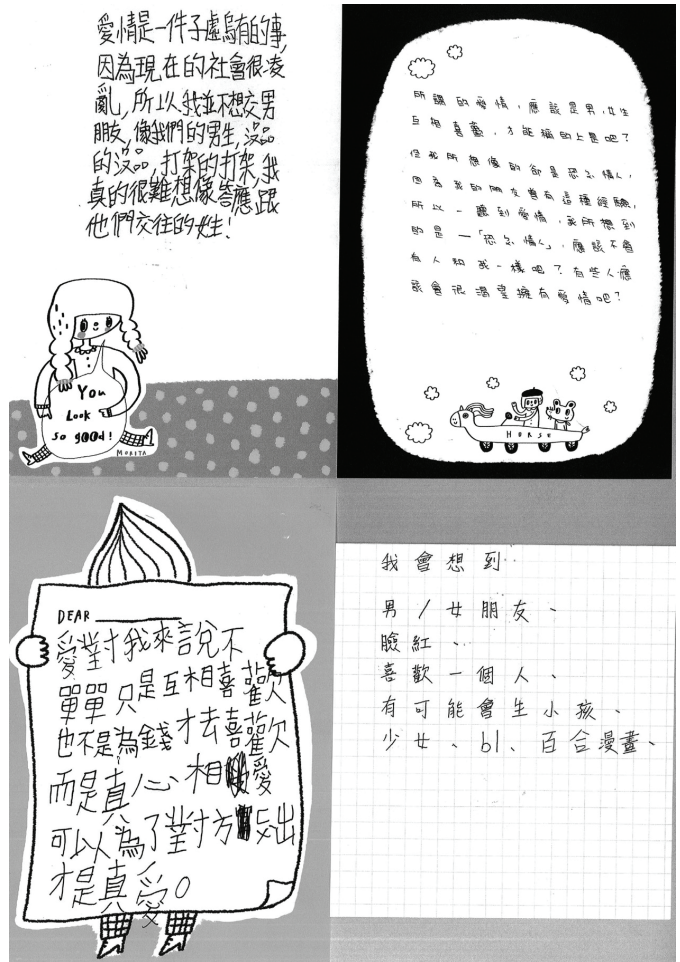 愛情是一件子虛烏有的事,
因為現在的社會很凌
亂,所以我並不想交男
朋友,像我們的男生,沒品
的沒品,打架的打架,我
真的很難想像答應跟
他們交往的女生!
You
Look
so good!
MORITA
所謂的愛情,應該是男,女生
互相喜歡,才能稱的上是吧?
但我所想像的卻是恐怖情人,
因為我的朋友曾有這種經驗,
所以一聽到愛情,我所想到
的是—「恐怖情人」,應該不會
有人和我一樣吧?有些人應
該會很渴望擁有愛情吧?
HORSE
DEAR
愛對我來說不
單單只是互相喜歡
也不是為錢才去喜歡
而是真心相愛
可以為了對方付出
才是真愛。
我會想到:
男/女朋友、
臉紅、
喜歡一個人、
有可能會生小孩、
少女、bl、百合漫畫、